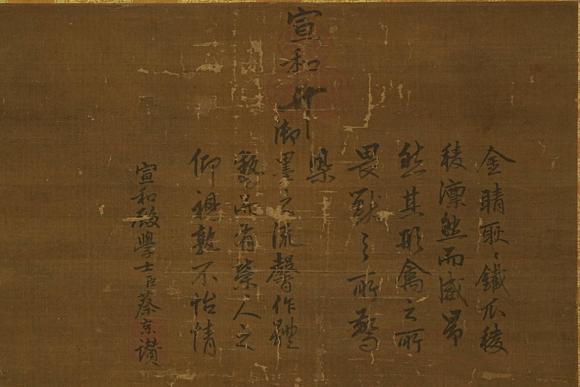 金睛耿々鐵爪稜
稜凜然而威昂
然其形禽之所
畏獸之所驚
染
宣和御墨之流馨作體
品有榮人之
仰視孰不怡情
宣和殿學士臣蔡京讚